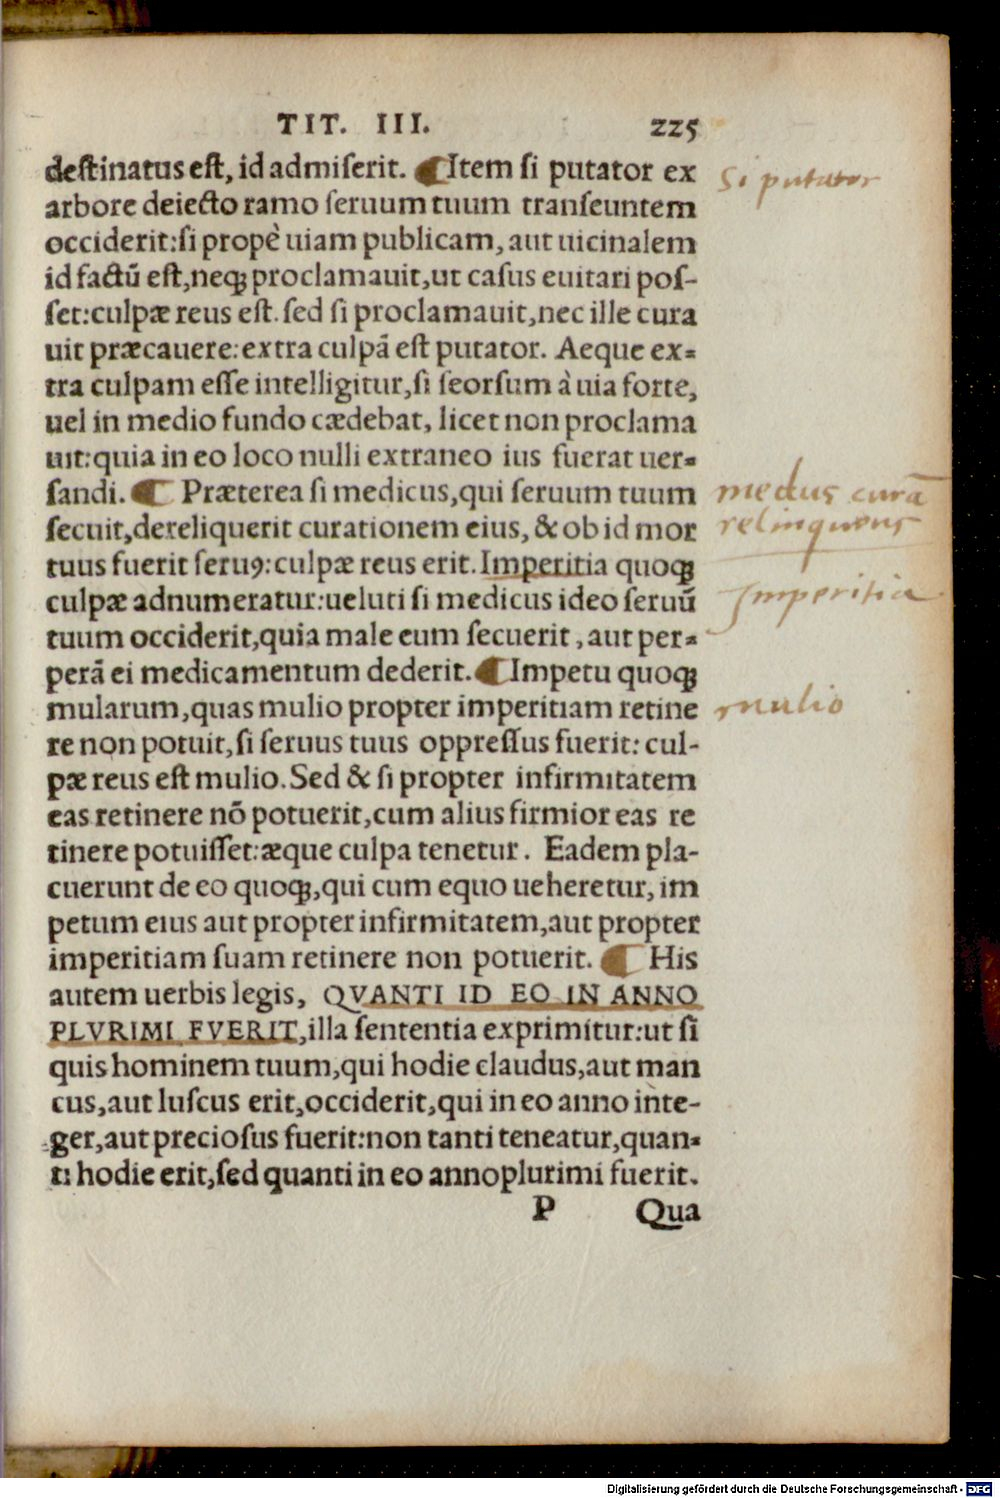 TIT. III. 225
destinatus est, id admiserit. ¶ Item si putator ex
arbore deiecto ramo seruum tuum transeuntem
occiderit: si propè uiam publicam, aut uicinalem
id factũ est, neqꝫ proclamauit, ut casus euitari pos-
set: culpæ reus est. sed si proclamauit, nec ille cura
uit præcauere: extra culpã est putator. Aeque ex-
tra culpam esse intelligitur, si seorsum à uia forte,
uel in medio fundo cædebat, licet non proclama
uit: quia in eo loco nulli extraneo ius fuerat uer-
sandi. ¶ Præterea si medicus, qui seruum tuum
secuit, dereliquerit curationem eius, & ob id mor
tuus fuerit seruꝰ: culpæ reus erit. Imperitia quoqꝫ
culpæ adnumeratur: ueluti si medicus ideo seruũ
tuum occiderit, quia male eum secuerit, aut per-
perã ei medicamentum dederit. ¶ Impetu quoqꝫ
mularum, quas mulio propter imperitiam retine
re non potuit, si seruus tuus oppressus fuerit: cul-
pæ reus est mulio. Sed & si propter infirmitatem
eas retinere nõ potuerit, cum alius firmior eas re
tinere potuisset: æque culpa tenetur. Eadem pla-
cuerunt de eo quoqꝫ, qui cum equo ueheretur, im
petum eius aut propter infirmitatem, aut propter
imperitiam suam retinere non potuerit. ¶ His
autem uerbis legis, QVANTI ID EO IN ANNO
PLVRIMI FVERIT, illa sententia exprimitur: ut si
quis hominem tuum, qui hodie claudus, aut man
cus, aut luscus erit, occiderit, qui in eo anno inte-
ger, aut preciosus fuerit: non tanti teneatur, quan-
ti hodie erit, sed quanti in eo anno plurimi fuerit.
P Qua
si putator
medicus curã
relinquens
Imperitia
mulio
Digitalisierung gefördert durch die Deutsche Forschungsgemeinschaft - DFG